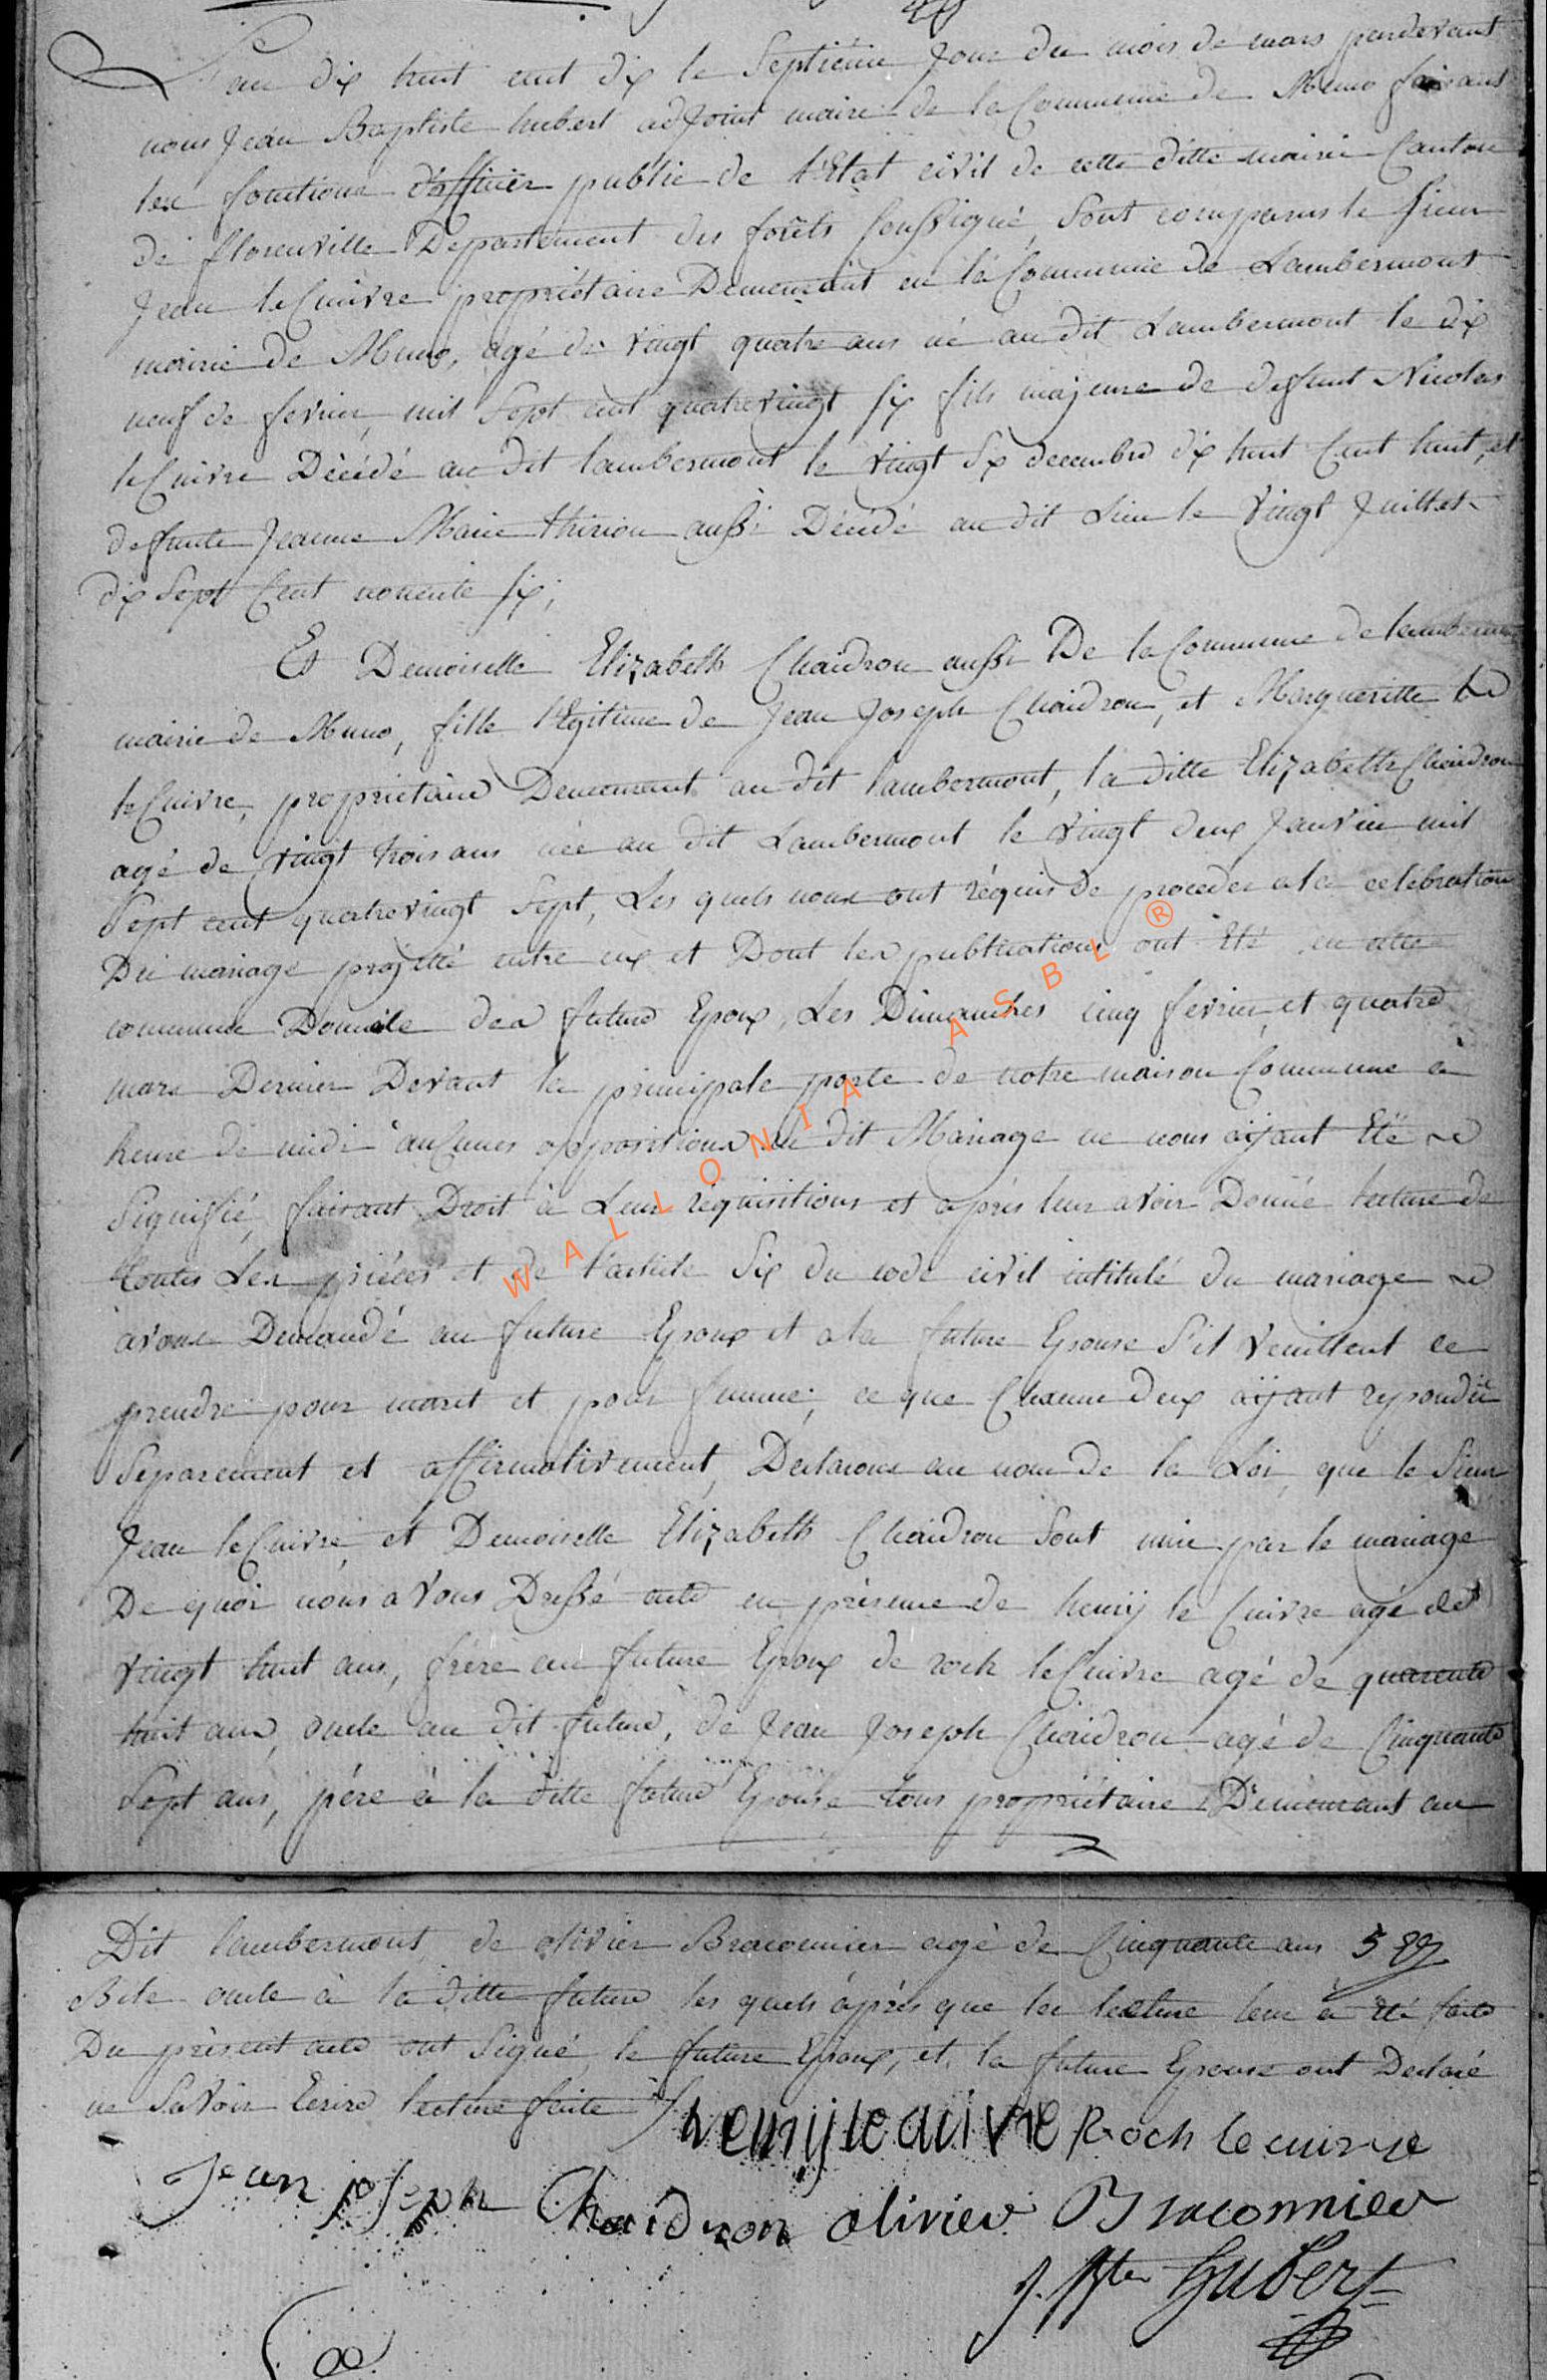 L'an dix huit cent dix le Septième Jour du mois de mars pardevant
nous Jean Baptiste hubert adjoint maire de la Commune de Muno faisant
les fonctions d'officier public de l'Etat civil de cette ditte mairie Canton
de florenville Departement des forêts soussigné, Sont comparus le Sieur
Jean leCuivre propriétaire Demeurant en la Commune de Lambermont
mairie de Muno, agé de vingt quatre ans né au dit Lambermont le dix
neuf de fevrier mil Sept cent quatrevingt six fils majeure de defunt Nicolas
leCuivre Décédé au dit lambermont le vingt Six decembre dix huit Cent huit, et
defunte Jeanne Marie thiriou aussi Décédé au dit Lieu le vingt Juillet
dix Sept Cent nonente six;
Et Demoiselle Elizabeth Chaidron aussi De la Commune de lambermont
mairie de Muno, fille légitime de Jean Joseph Chaidron, et Margueritte
leCuivre, propriétaire Demeurant au dit lambermont, la ditte Elizabeth Chaidron
agé de vingt trois ans née au dit Lambermont le vingt deux Janvier mil
Sept cent quatrevingt Sept, Les quels nous ont réquis de proceder a la celebration
Du mariage projetté entre eux et Dont les publications ont été en cette
commune Domicile des future Epoux, Les Dimanches cinq fevrier, et quatre
mars Dernier Devant la principale porte de notre maison Commune à
heure de midi aucunes oppositions au dit Mariage ne nous aÿant Eté
Signifié, faisant Droit à Leur réquisitions et après leur avoir Donné lecture de
toutes Les pièces et de l'article Six du code civil intitulé du mariage
avons Demandé au future Epoux et a la future Epouse S'il veuillent ce
prendre pour mari et pour femme, ce que Chacun deux aÿant repondu
Séparement et affirmativement, Declarons au nom de la Loi, que le Sieur
Jean leCuivre et Demoiselle Elizabeth Chaidron Sont unie par le mariage
De quoi nous avons Dressé acte en présence de henrÿ le Cuivre agé de
vingt huit ans, frère au future Epoux de roch leCuivre agé de quarante
huit ans, oncle au dit future, de Jean Joseph Chaidron agé de Cinquante
Sept ans, père à la ditte future Epouse tous propriétaire Demeurant au
Dit lambermont, de olivier Braconnier agé de Cinquante ans
oncle à la ditte future les quels après que la lecture leur a été faite
Du présent acte ont Signé, le future Epoux, et la future Epouse ont Declaré
ne Savoir Ecrire lecture faite
henrij le cuivre Roch le cuivre
Jean joseph Chaidron olivier Braconnier
J. Bte Hubert
WALLONIA ASBL ®